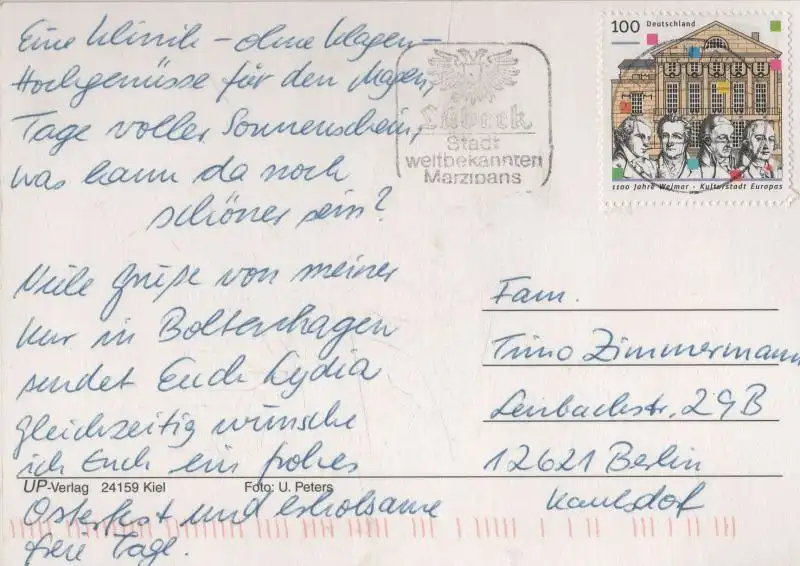 Eine Klinik – ohne Klagen –
Hochgenüsse für den Magen,
Tage voller Sonnenschein,
was kann da noch
schöner sein?
Viele Grüße von meiner
Kur in Boltenhagen
sendet Euch Lydia
gleichzeitig wünsche
ich Euch ein frohes
Osterfest und erholsame
freie Tage.
UP-Verlag 24159 Kiel Foto: U. Peters
Lübeck
Stadt
weltbekannten
Marzipans
100 Deutschland
1100 Jahre Weimar · Kulturstadt Europas
Fam.
Timo Zimmermann
Lenbachstr. 29B
12621 Berlin
Kaulsdof